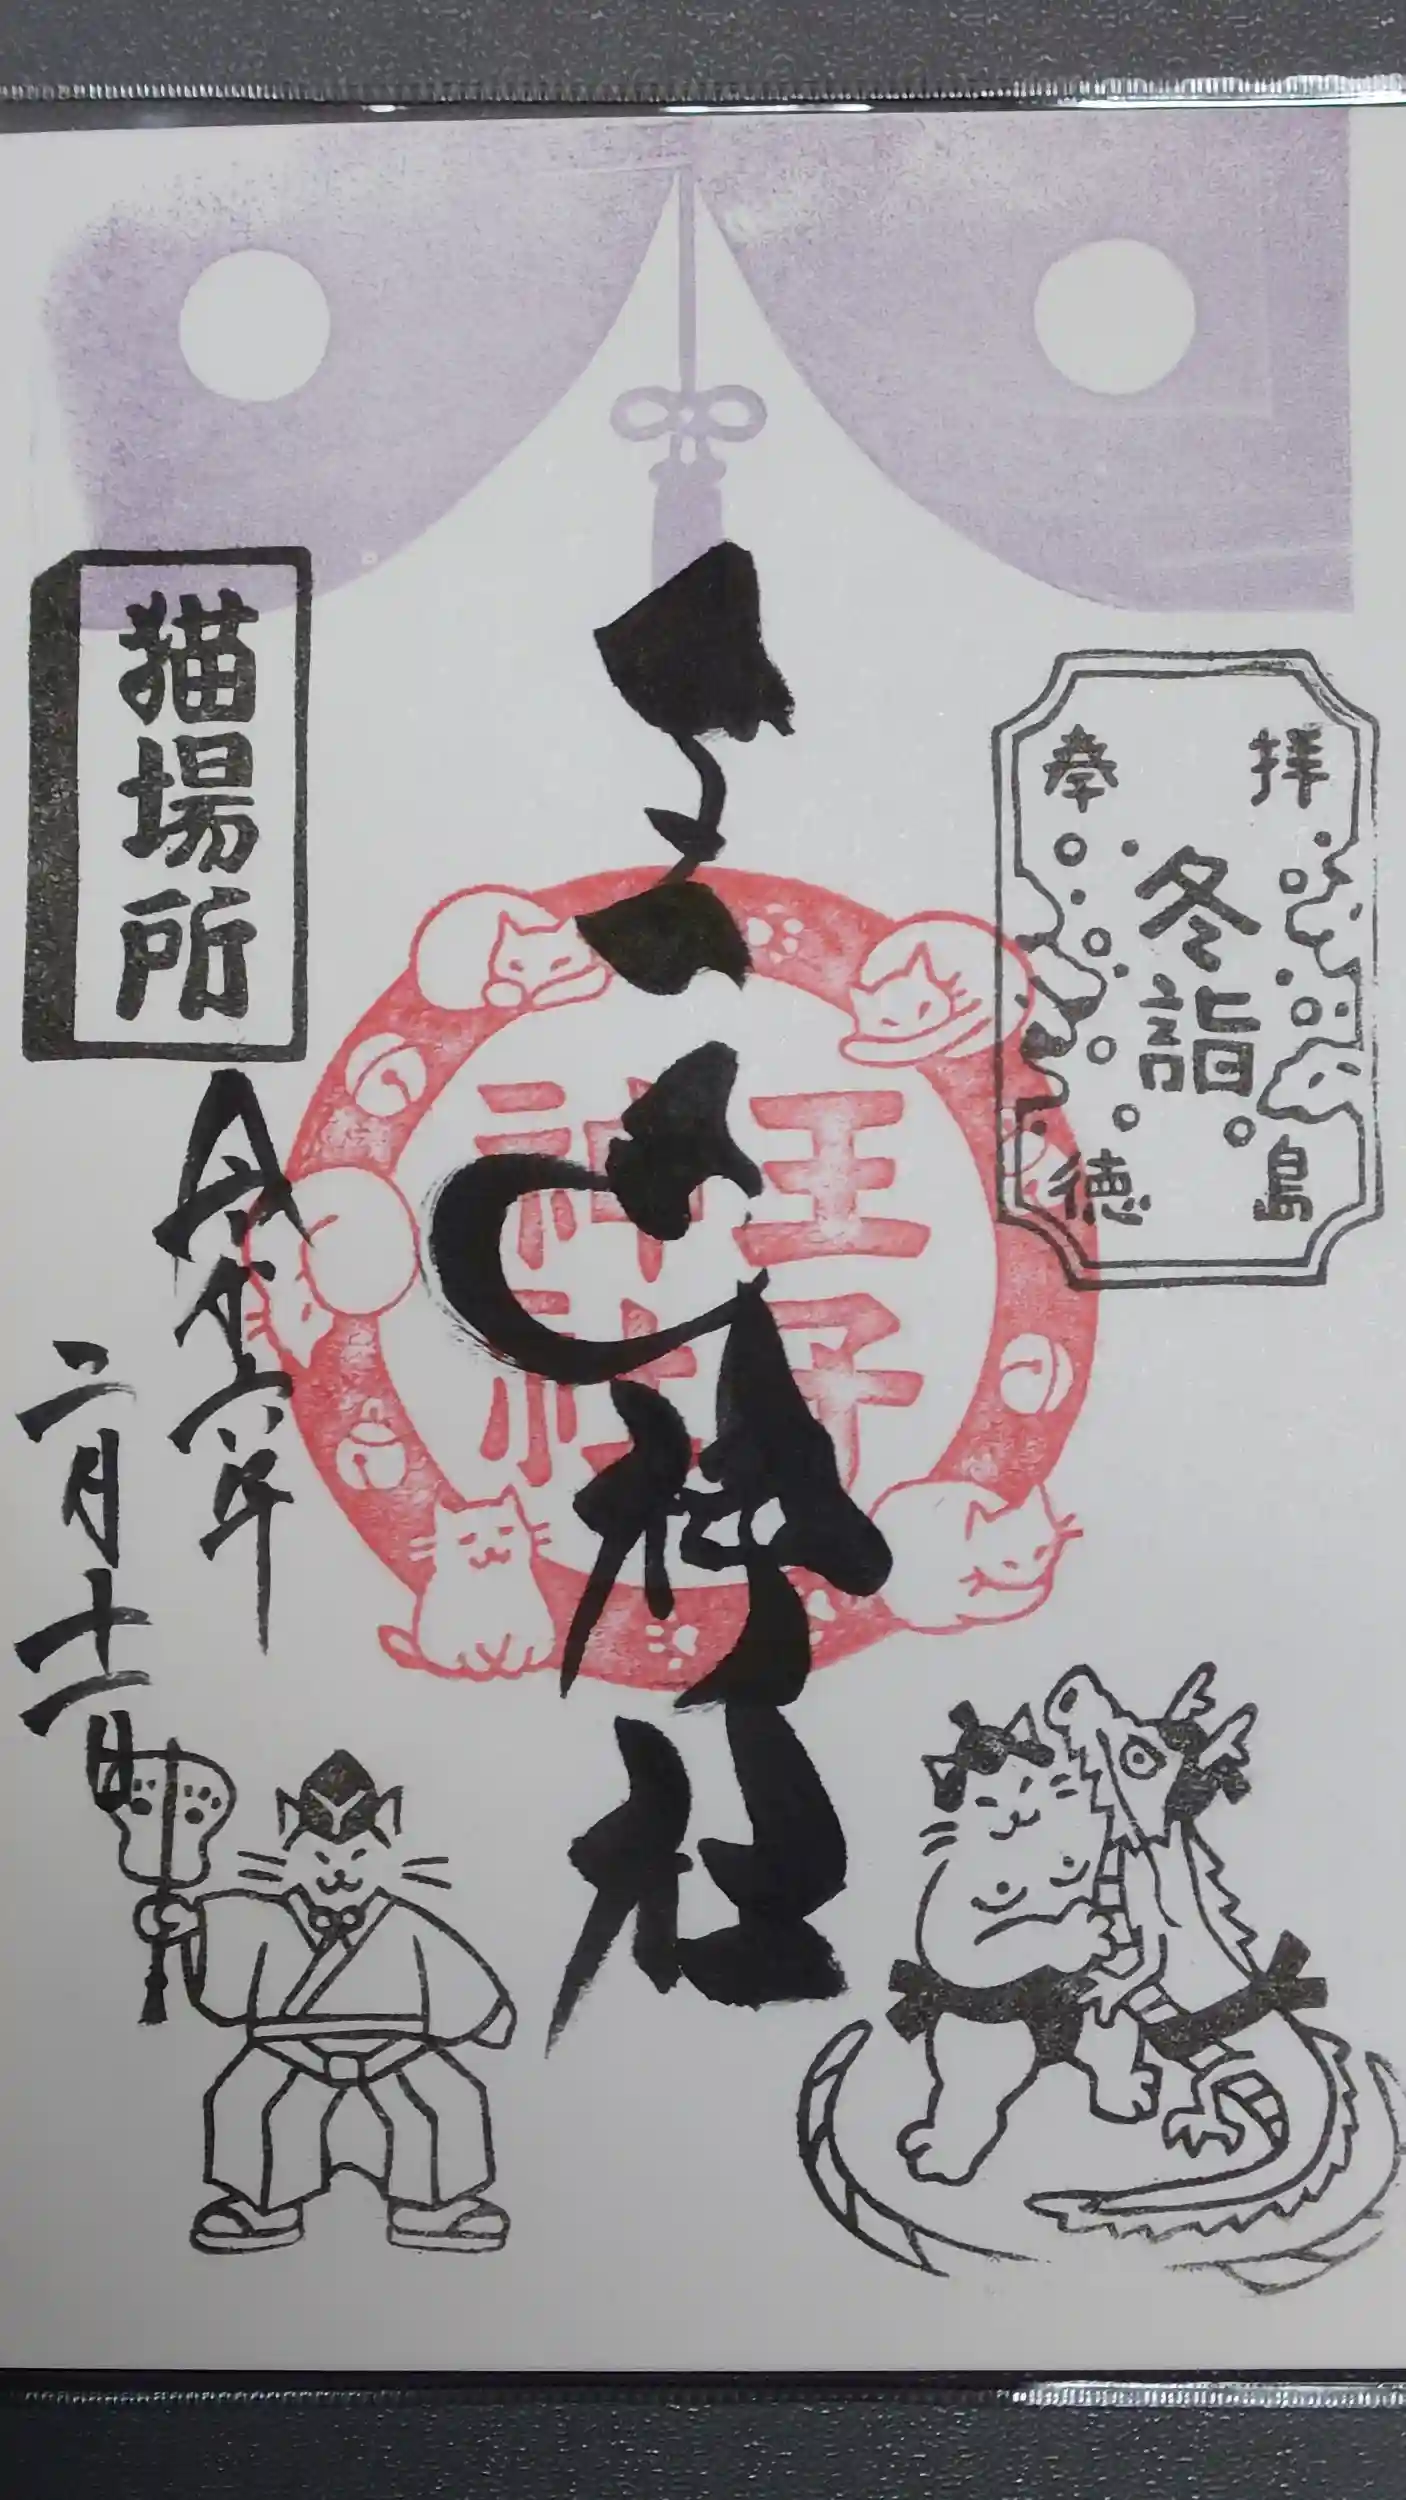 奉拝
冬詣
徳島
王子神社
王子
神社
猫場所
令和六年
二月十一日